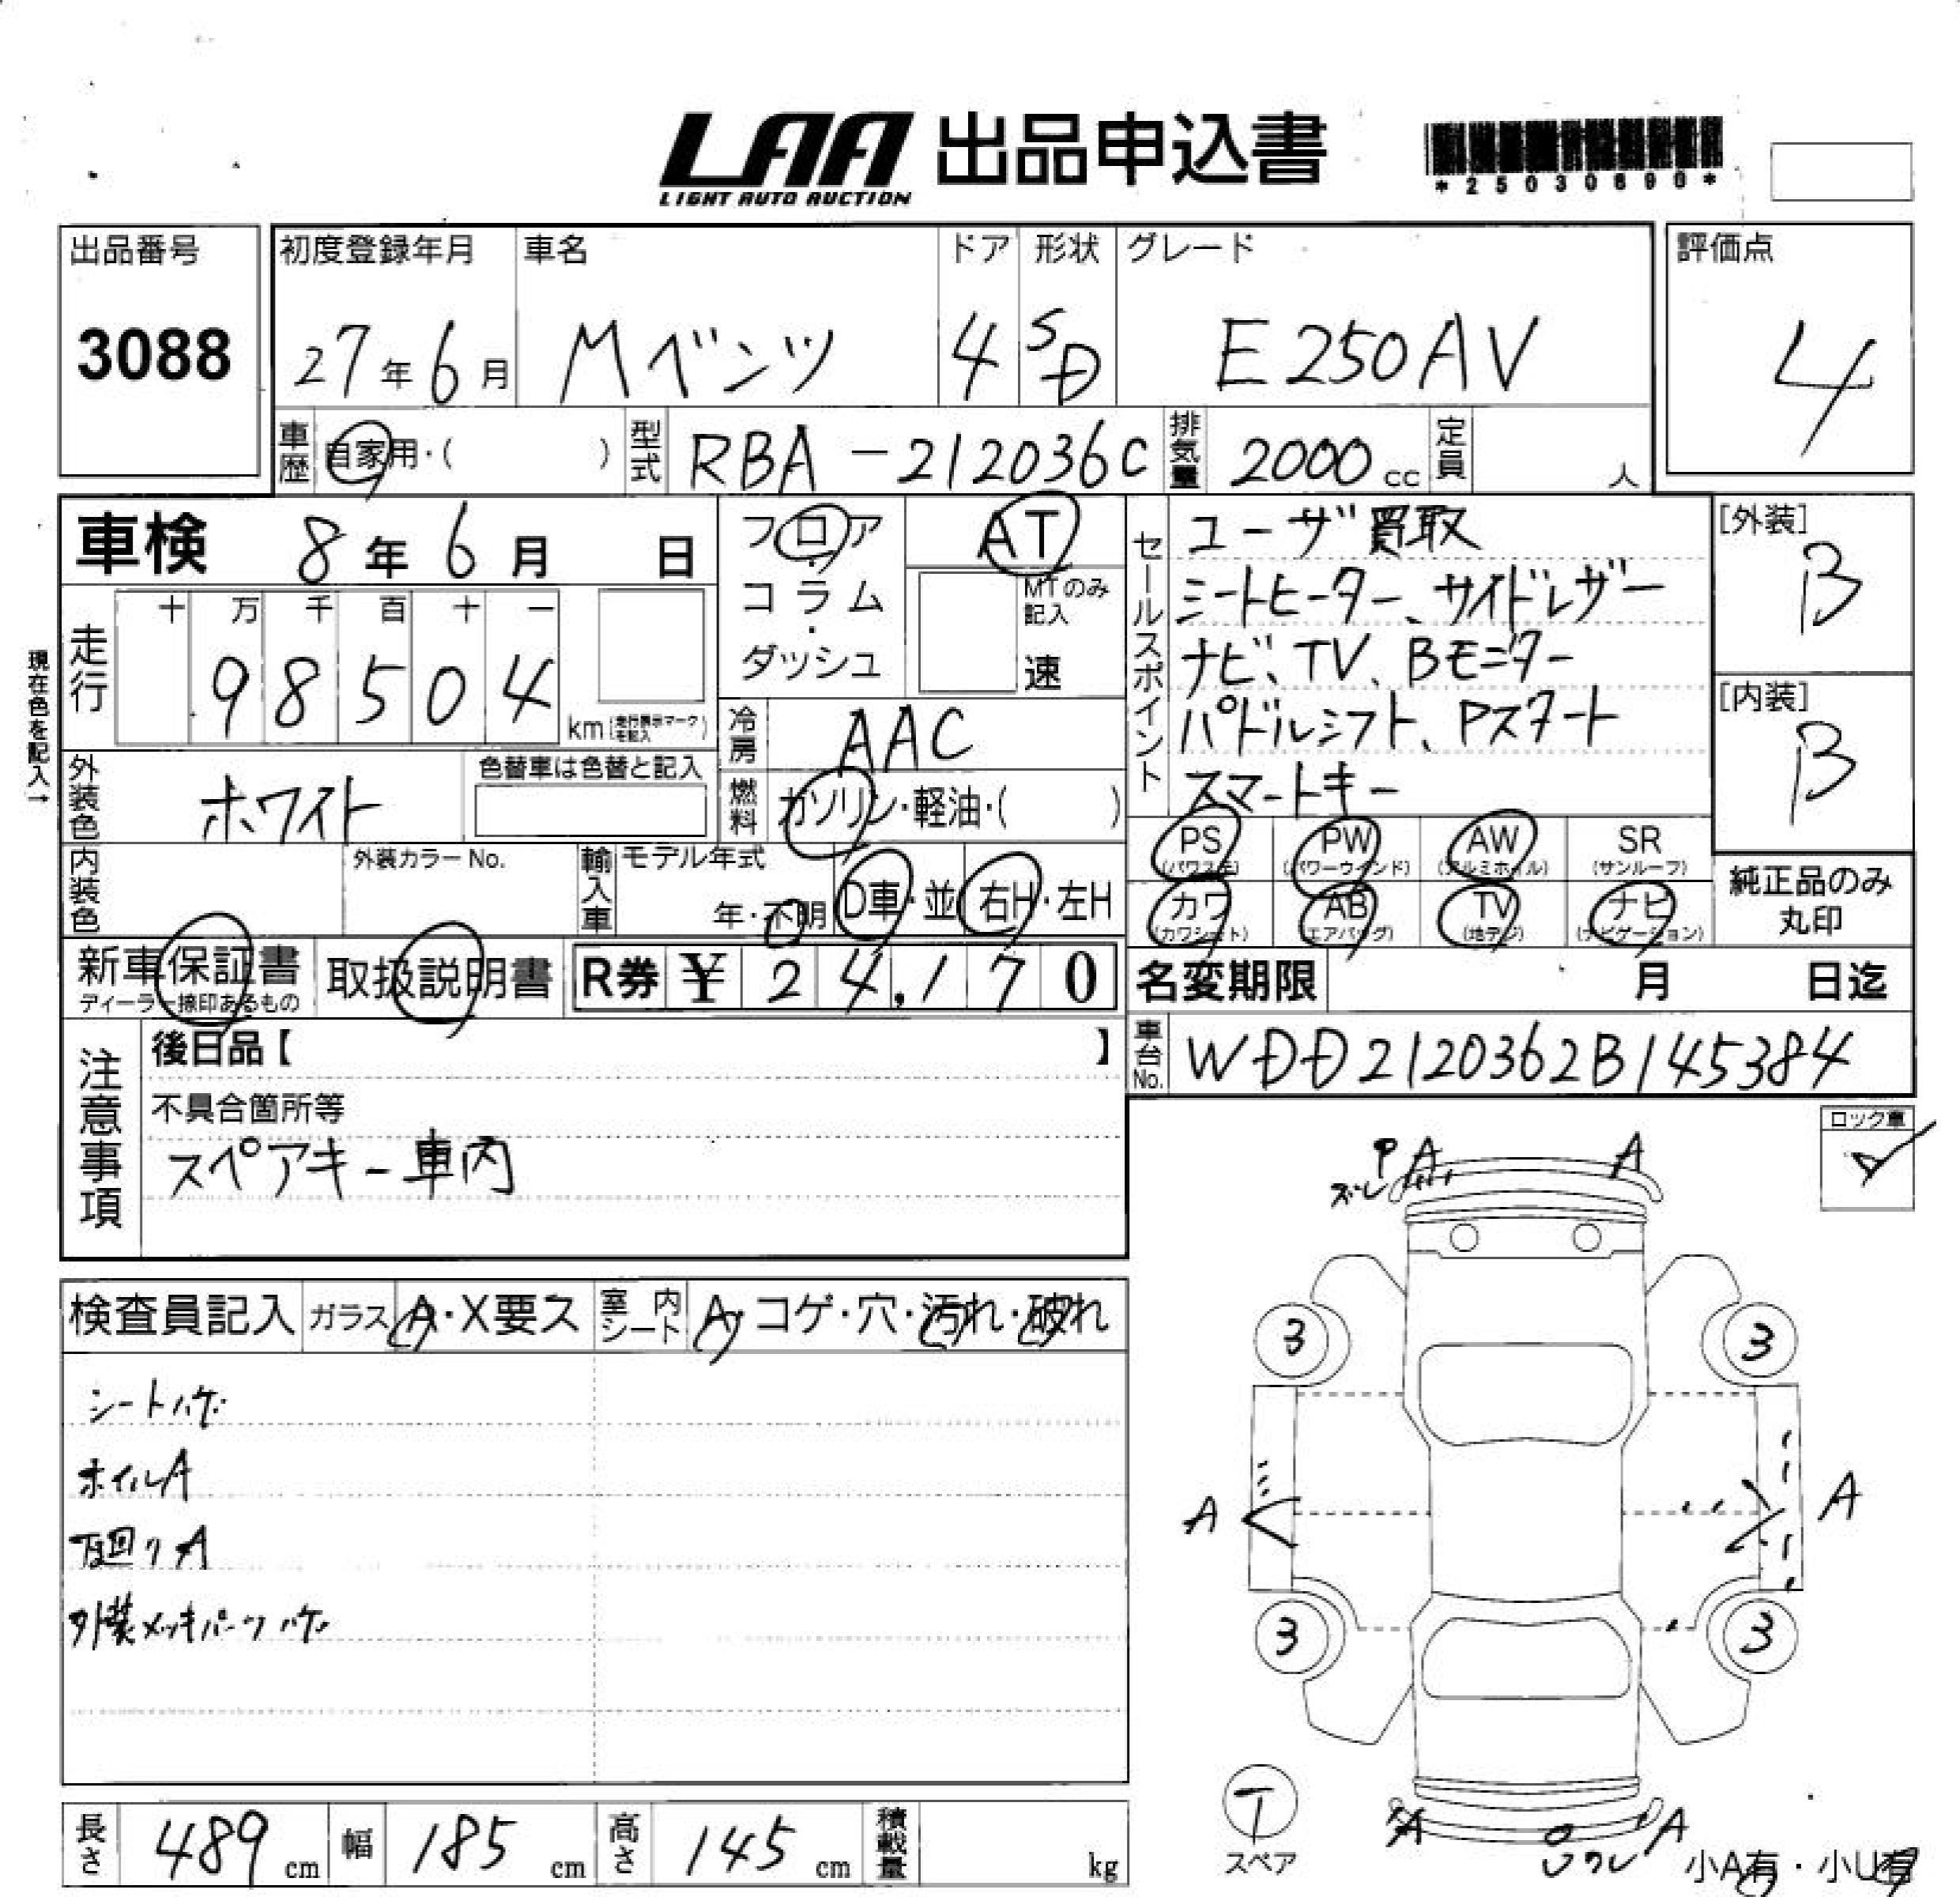 LAA 出品申込書
LIGHT AUTO AUCTION
*25030690*
出品番号
3088
初度登録年月 車名 ドア 形状 グレード
27年6月 Mベンツ 4 SD E250AV
評価点
4
車歴 自家用・( ) 型式 RBA-212036C 排気量 2000cc 定員 人
車検 8年6月 日
現在色を記入→
走行 十 万 千 百 十 一
98504 km(走行表示マークを記入)
外装色 ホワイト 色替車は色替と記入
内装色 外装カラーNo. 輸入車 モデル年式
年・不明 D車・並 右H・左H
フロア
・
コラム
・
ダッシュ
AT
MTのみ記入
速
冷房 AAC
燃料 ガソリン・軽油・( )
セールスポイント
ユーザ買取
シートヒーター、サイドレザー
ナビ、TV、Bモニター
パドルシフト、Pスタート
スマートキー
[外装]
B
[内装]
B
PS (パワステ) PW (パワーウインド) AW (アルミホイル) SR (サンルーフ)
カワ (カワシート) AB (エアバッグ) TV (地デジ) ナビ (ナビゲーション)
純正品のみ
丸印
新車保証書 取扱説明書 R券 ¥ 24,170
ディーラー捺印あるもの
名変期限 月 日迄
車台No. WDD2120362B145384
注意事項
後日品【 】
不具合箇所等
スペアキー車内
ロック車
検査員記入 ガラス A・X要ス 室内シート A・コゲ・穴・汚れ・破れ
シートハゲ
ホイルA
下回りA
外装メッキパーツハゲ
P A A
ズレ
3 3
A A
3 3
T
スペア
A A
ワレ
小A有・小U有
長さ 489cm 幅 185cm 高さ 145cm 積載量 kg